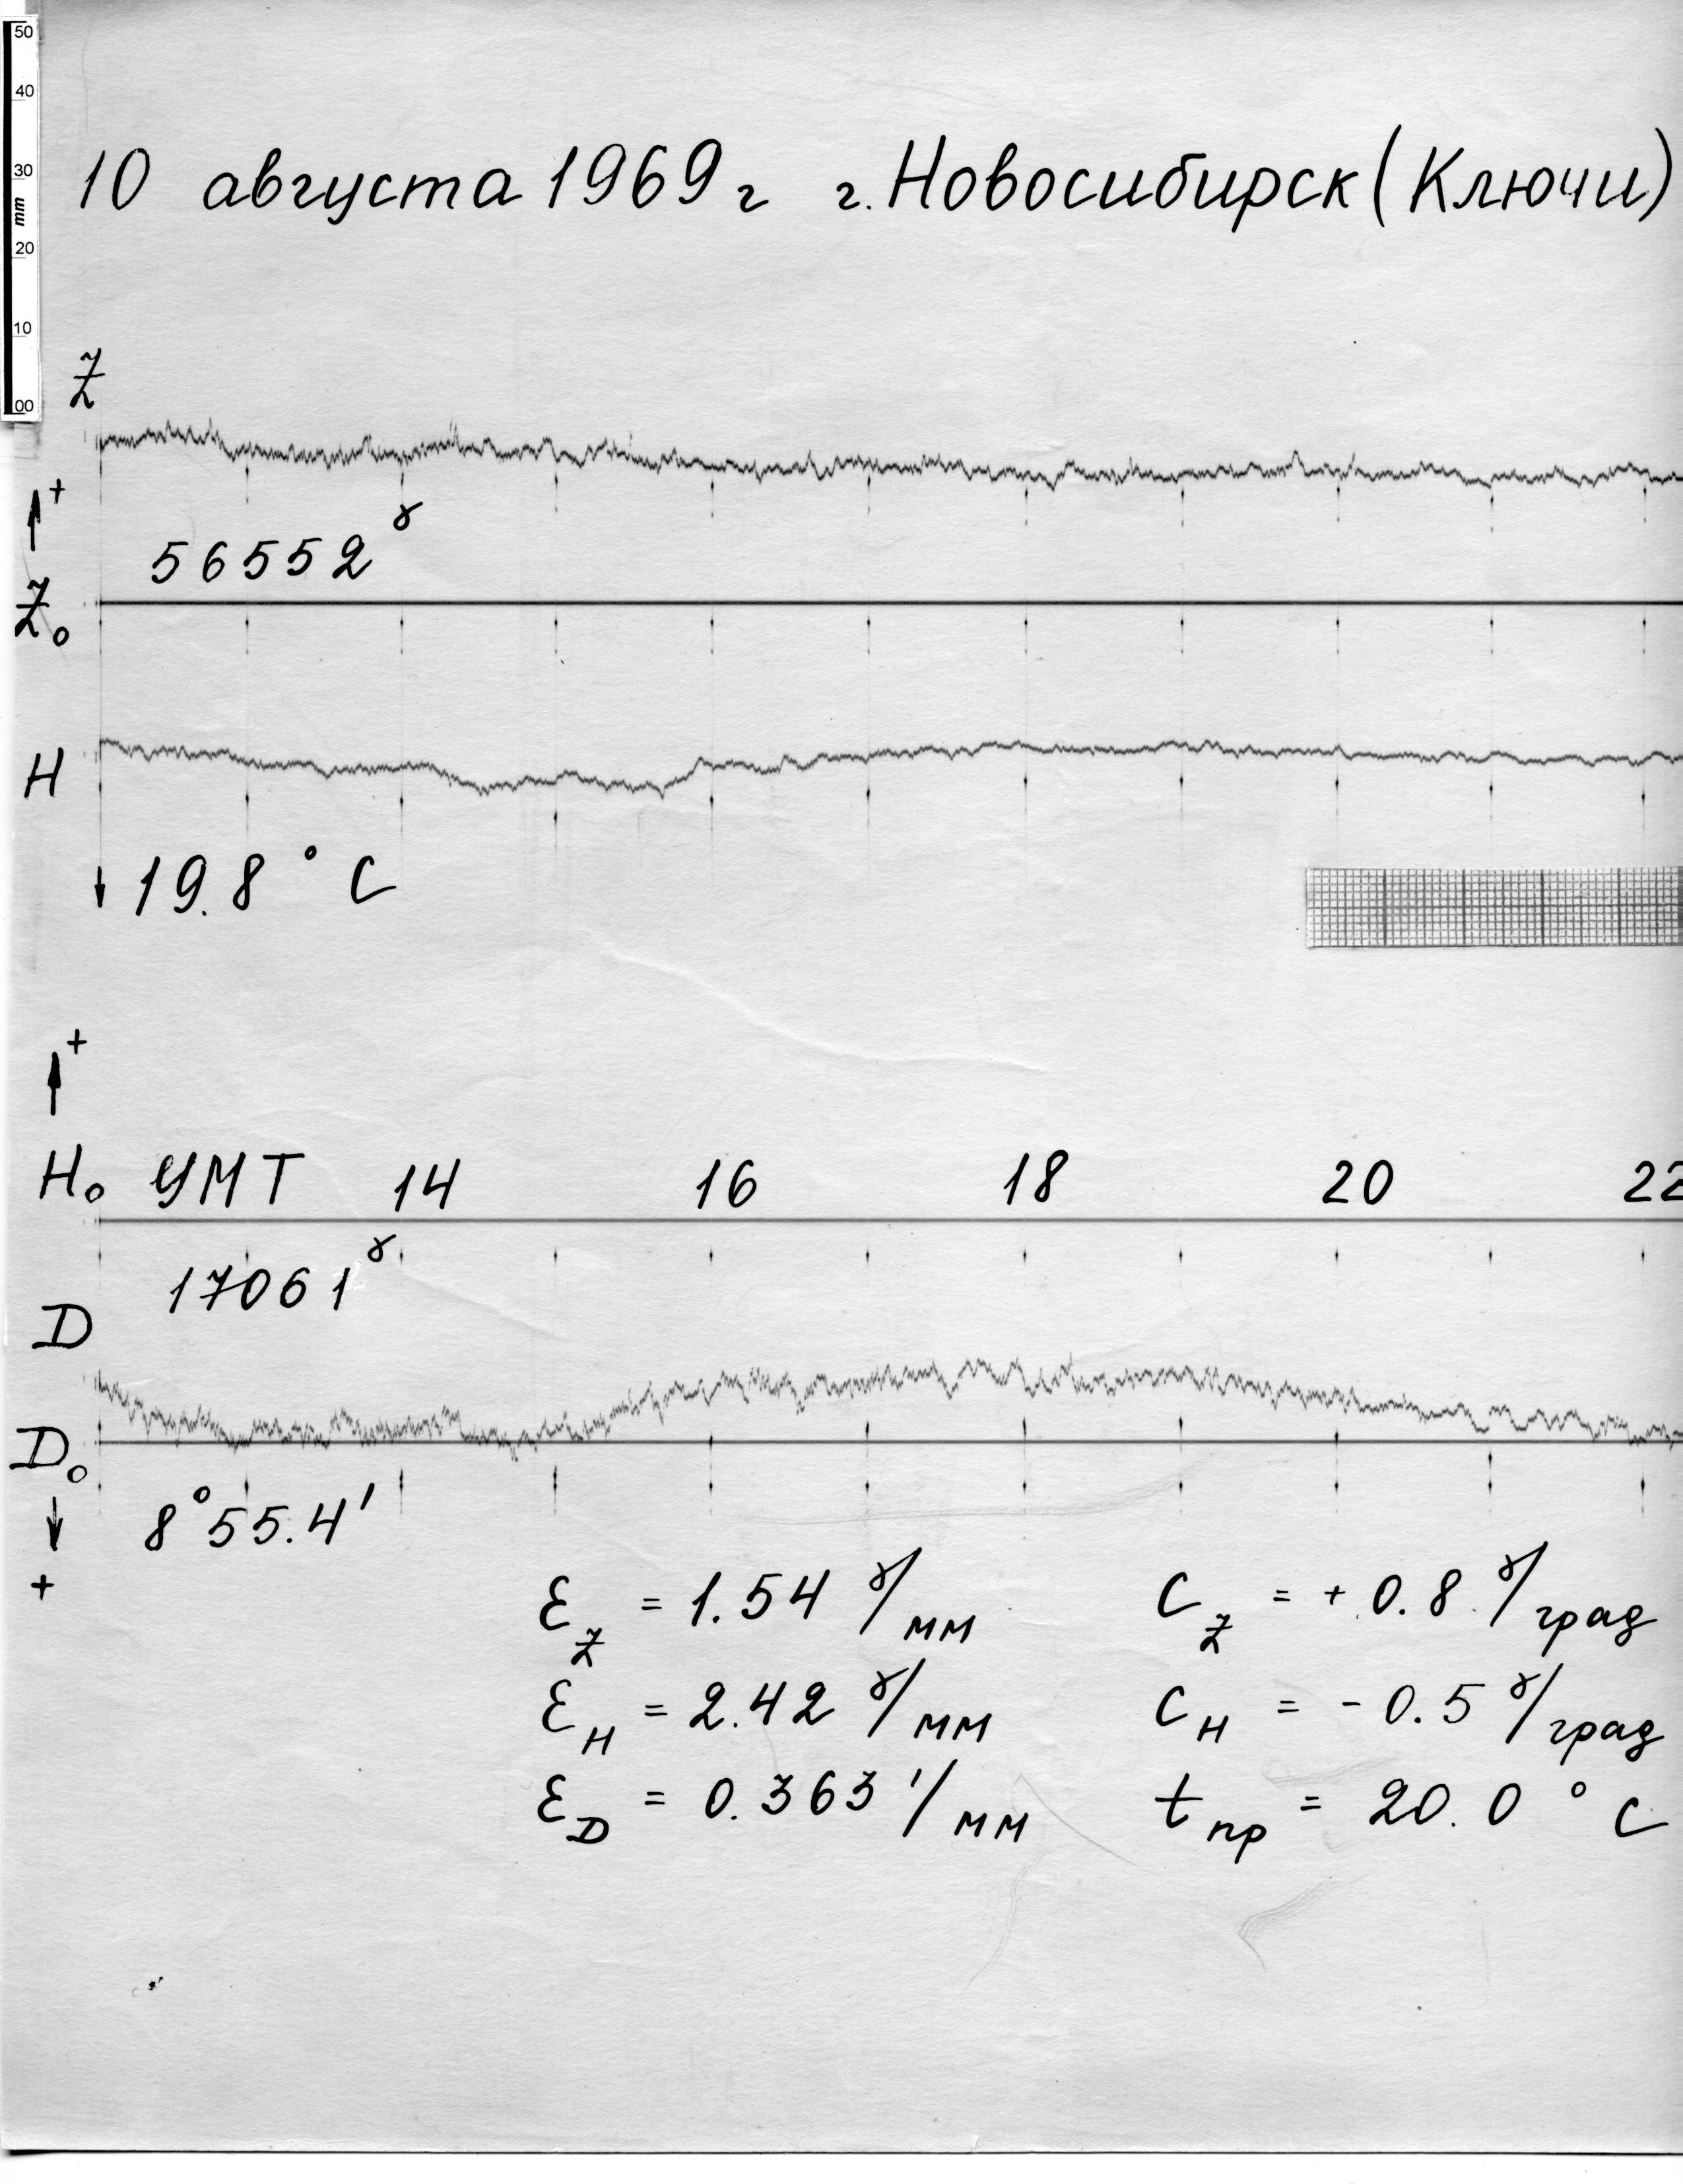 50
40
30
mm
20
10
00
10 августа 1969 г г. Новосибирск (Ключи)
Z
+
56552 γ
Z₀
H
19.8 ° C
+
H₀ УМТ 14 16 18 20 22
17061 γ
D
D₀
8°55.4'
+
Ɛ_Z = 1.54 γ/мм C_Z = + 0.8 γ/град
Ɛ_H = 2.42 γ/мм C_H = - 0.5 γ/град
Ɛ_D = 0.363 '/мм t_пр = 20.0 ° C